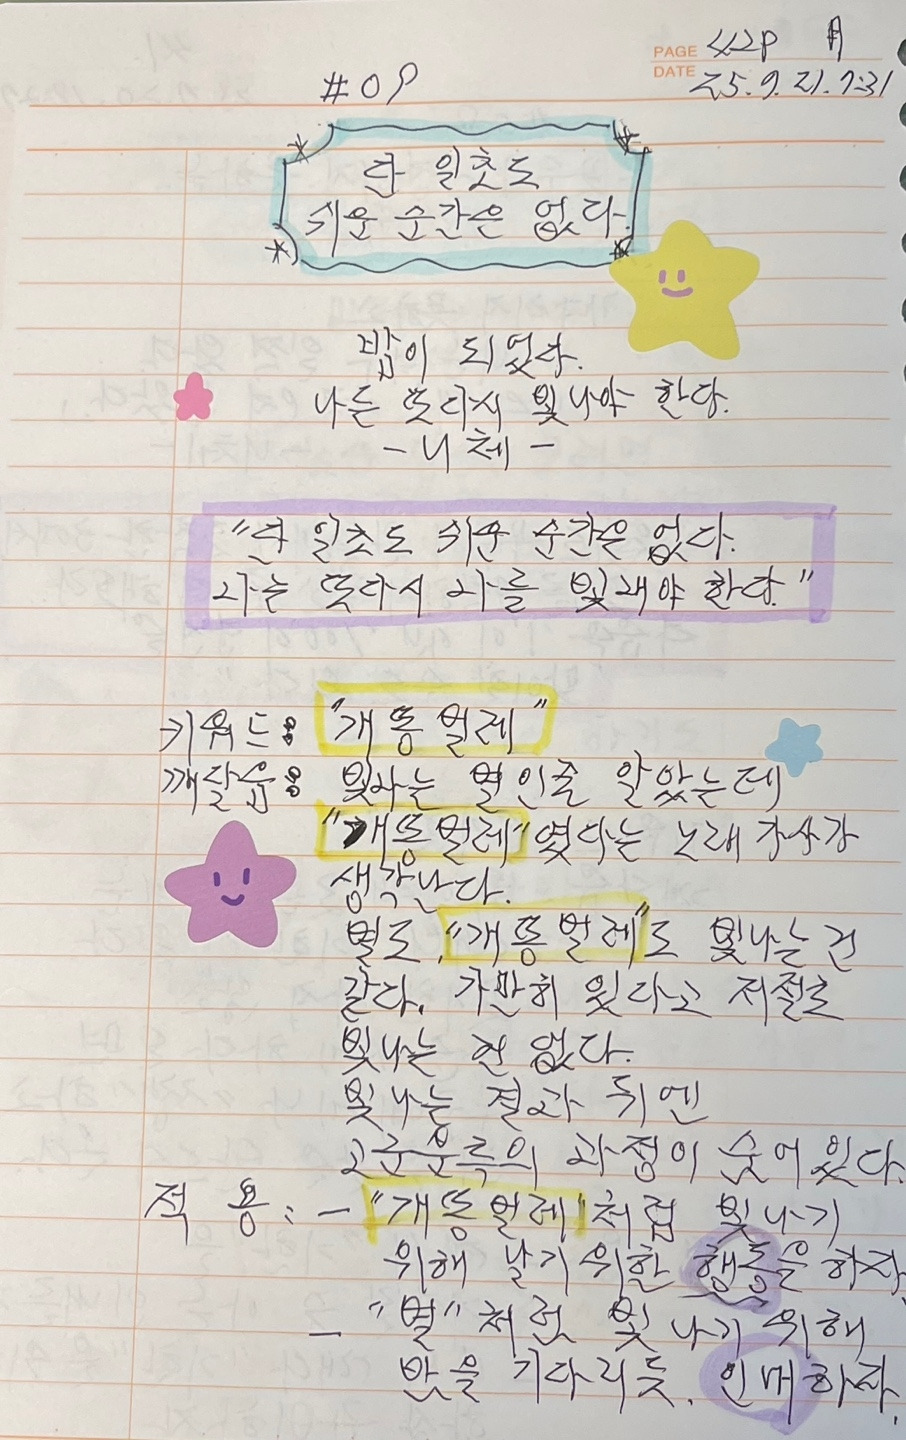 PAGE 42P
DATE 25.9.21.7:31
#09
단 일초도
쉬운 순간은 없다.
밤이 되었다.
나는 또다시 빛나야 한다.
- 니체 -
"단 일초도 쉬운 순간은 없다.
나는 또다시 나를 빛내야 한다."
키워드: "개똥벌레"
깨달음: 빛나는 별인줄 알았는데
"개똥벌레"였다는 노래 가사가
생각난다.
별도, "개똥벌레"도 빛나는건
같다. 가만히 있다고 저절로
빛나는 건 없다.
빛나는 결과 뒤엔
고군분투의 과정이 숨어있다.
적용: - "개똥벌레"처럼 빛나기
위해 날기 위한 행동을 하자.
- "별"처럼 빛나기 위해
밤을 기다리듯, 인내하자.